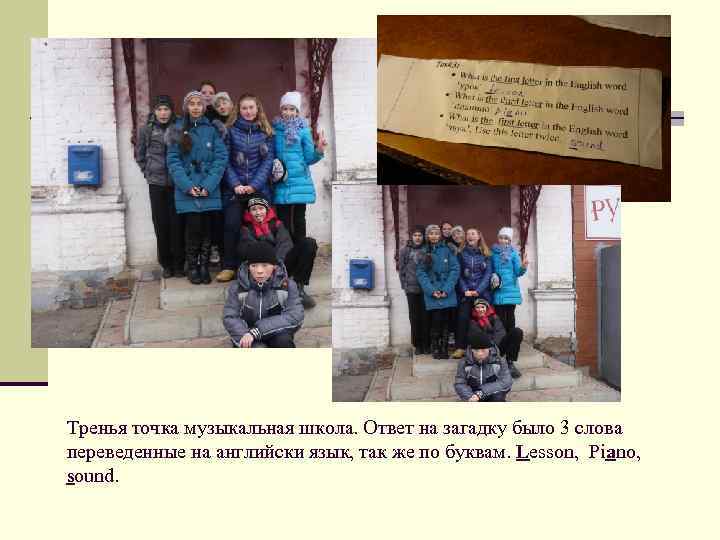 Tasks:
• What is the first letter in the English word
"урок" lesson
• What is the third letter in the English word
"пианино" piano
• What is the first letter in the English word
"звук". Use this letter twice. sound
РУ
Тренья точка музыкальная школа. Ответ на загадку было 3 слова
переведенные на английски язык, так же по буквам. Lesson, Piano,
sound.